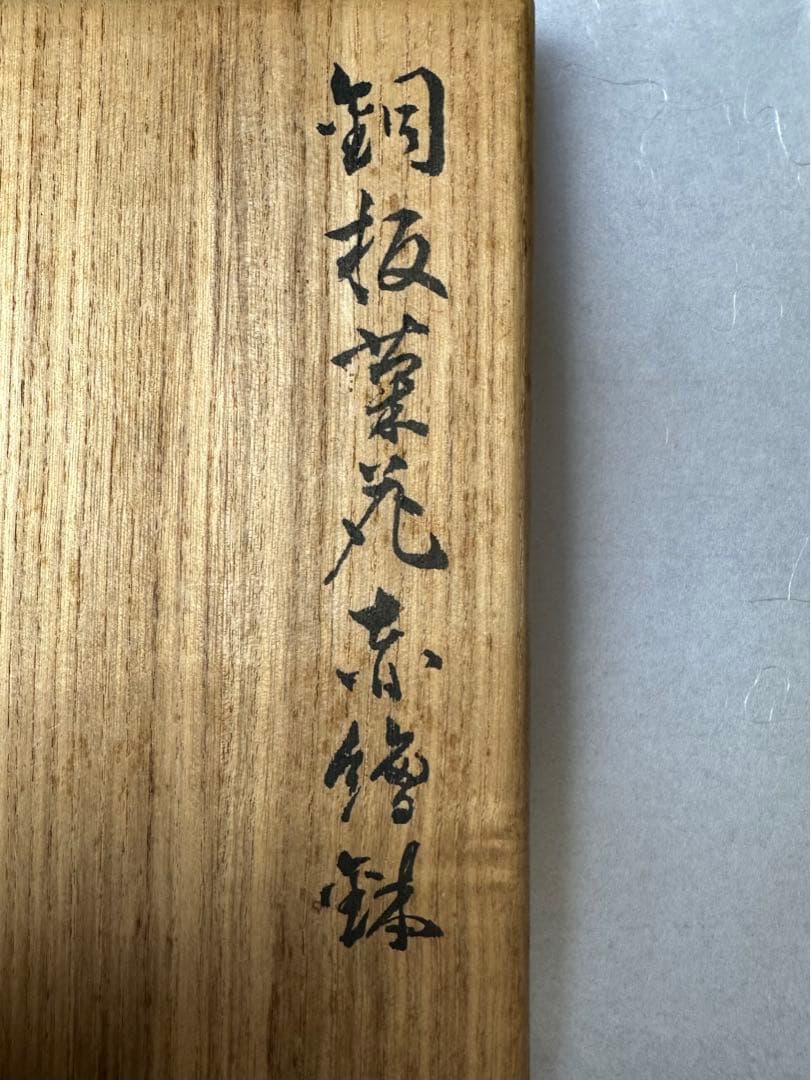 銅板菓花赤繪鉢